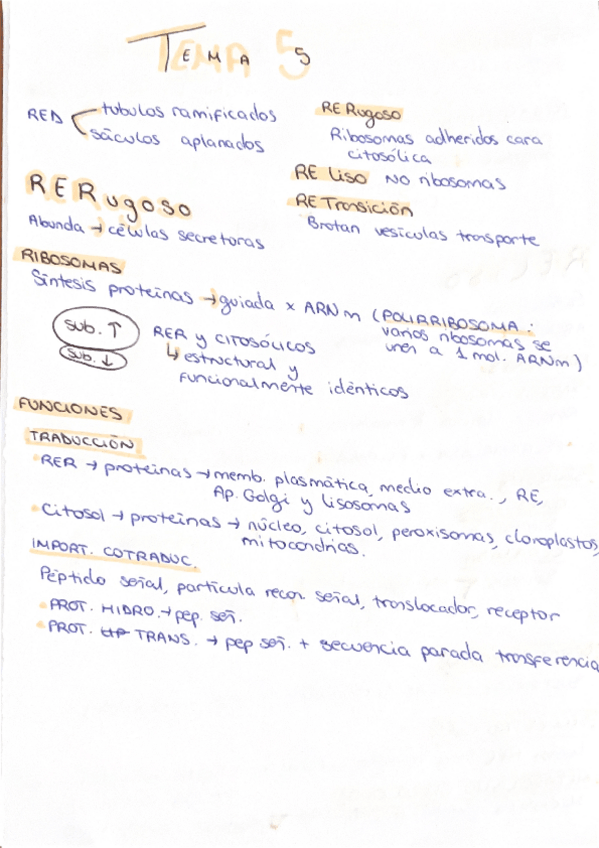 TEMA 5
RED
tubulos ramificados
sáculos aplanados
RE Rugoso
Ribosomas adheridos cara
citosólica
RE Liso No ribosomas
RE Transición
Brotan vesiculas transporte
RE Rugoso
Abunda → células secretoras
RIBOSOMAS
Síntesis proteinas → guiada x ARNm (POLIRRIBOSOMA:
varios ribosomas se
unen a 1 mol. ARNm)
sub. ↑
sub. ↓
RER y CITOSÓLICOS
↳ estructural y
funcionalmente idénticos
FUNCIONES
TRADUCCIÓN
RER → proteinas → memb. plasmática, medio extra., RE,
Ap. Golgi y lisosomas
Citosol → proteinas → núcleo, citosol, peroxisomas, cloroplastos,
mitocondrias.
IMPORT. COTRADUC.
Péptido señal, partícula recon. señal, translocador, receptor
PROT. HIDRO. → pep. señ.
PROT. TRANS. → pep señ. + secuencia parada transferencia